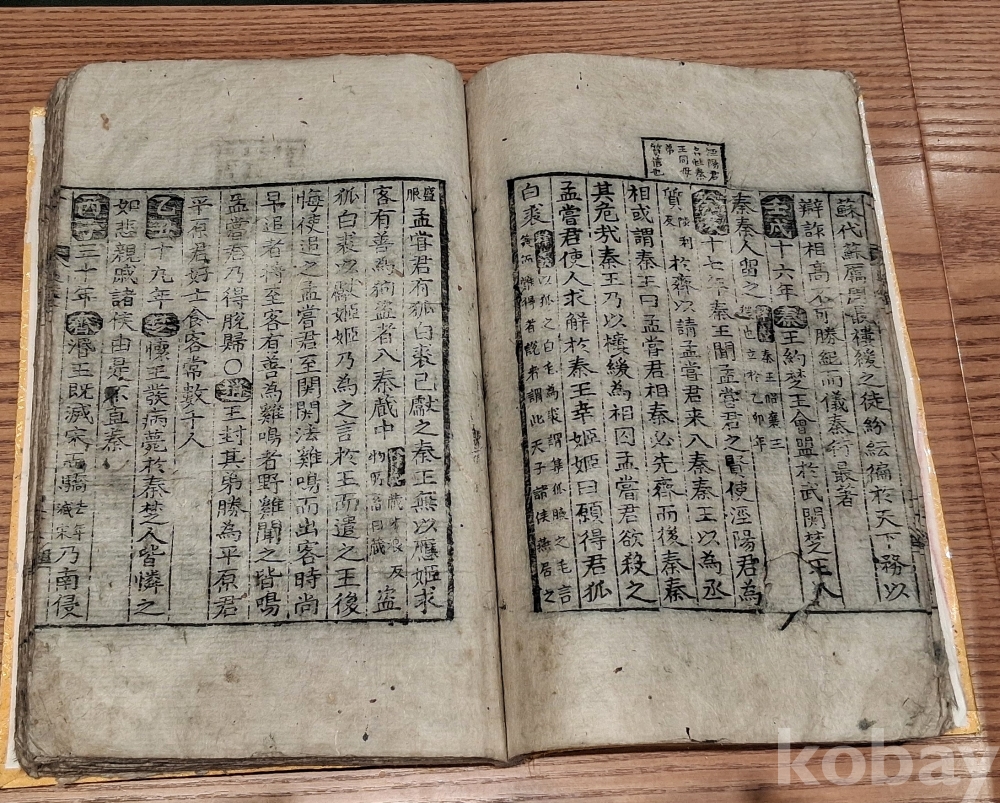 蘇代蘇厲周最樓緩之徒紛紜徧於天下務以
辯詐相高不可勝紀而儀秦衍最著
壬戌十六年秦王約楚王會盟於武關楚王入
秦秦人留之秦王昭襄王也立於乙卯年
癸亥十七年秦王聞孟嘗君之賢使涇陽君為
質於齊以請孟嘗君來入秦秦王以為丞
相或謂秦王曰孟嘗君相秦必先齊而後秦秦
其危哉秦王乃以樓緩為相囚孟嘗君欲殺之
孟嘗君使人求解於秦王幸姬姬曰願得君狐
白裘以狐之白毛為裘謂集狐腋之毛言難得者謂此天子諸侯燕居之
盛服孟嘗君有狐白裘已獻之秦王無以應姬求
客有善為狗盜者入秦藏中藏才浪反物所蓄曰藏盜
狐白裘以獻姬姬乃為之言於王而遣之王後
悔使追之孟嘗君至關關法雞鳴而出客時尚
早追者將至客有善為雞鳴者野雞聞之皆鳴
孟嘗君乃得脫歸○趙王封其弟勝為平原君
平原君好士食客常數千人
乙丑十九年楚懷王發病薨於秦楚人皆憐之
如悲親戚諸侯由是不直秦
丙子三十年齊湣王既滅宋而驕去年滅宋乃南侵
kobay